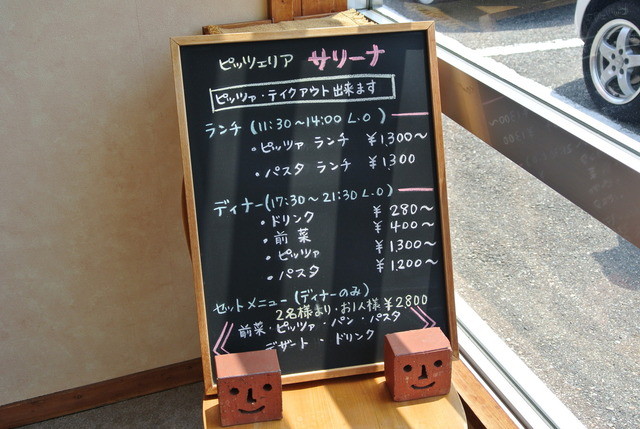 ピッツェリア サリーナ
ピッツァ・テイクアウト出来ます
ランチ (11:30〜14:00 L.O)
・ピッツァ ランチ ¥1,300〜
・パスタ ランチ ¥1,300
ディナー(17:30〜21:30 L.O)
・ドリンク ¥ 280〜
・前菜 ¥ 400〜
・ピッツァ ¥1,300〜
・パスタ ¥1,200〜
セットメニュー (ディナーのみ)
2名様より・お1人様 ¥2800
前菜・ピッツァ・パン・パスタ
デザート・ドリンク